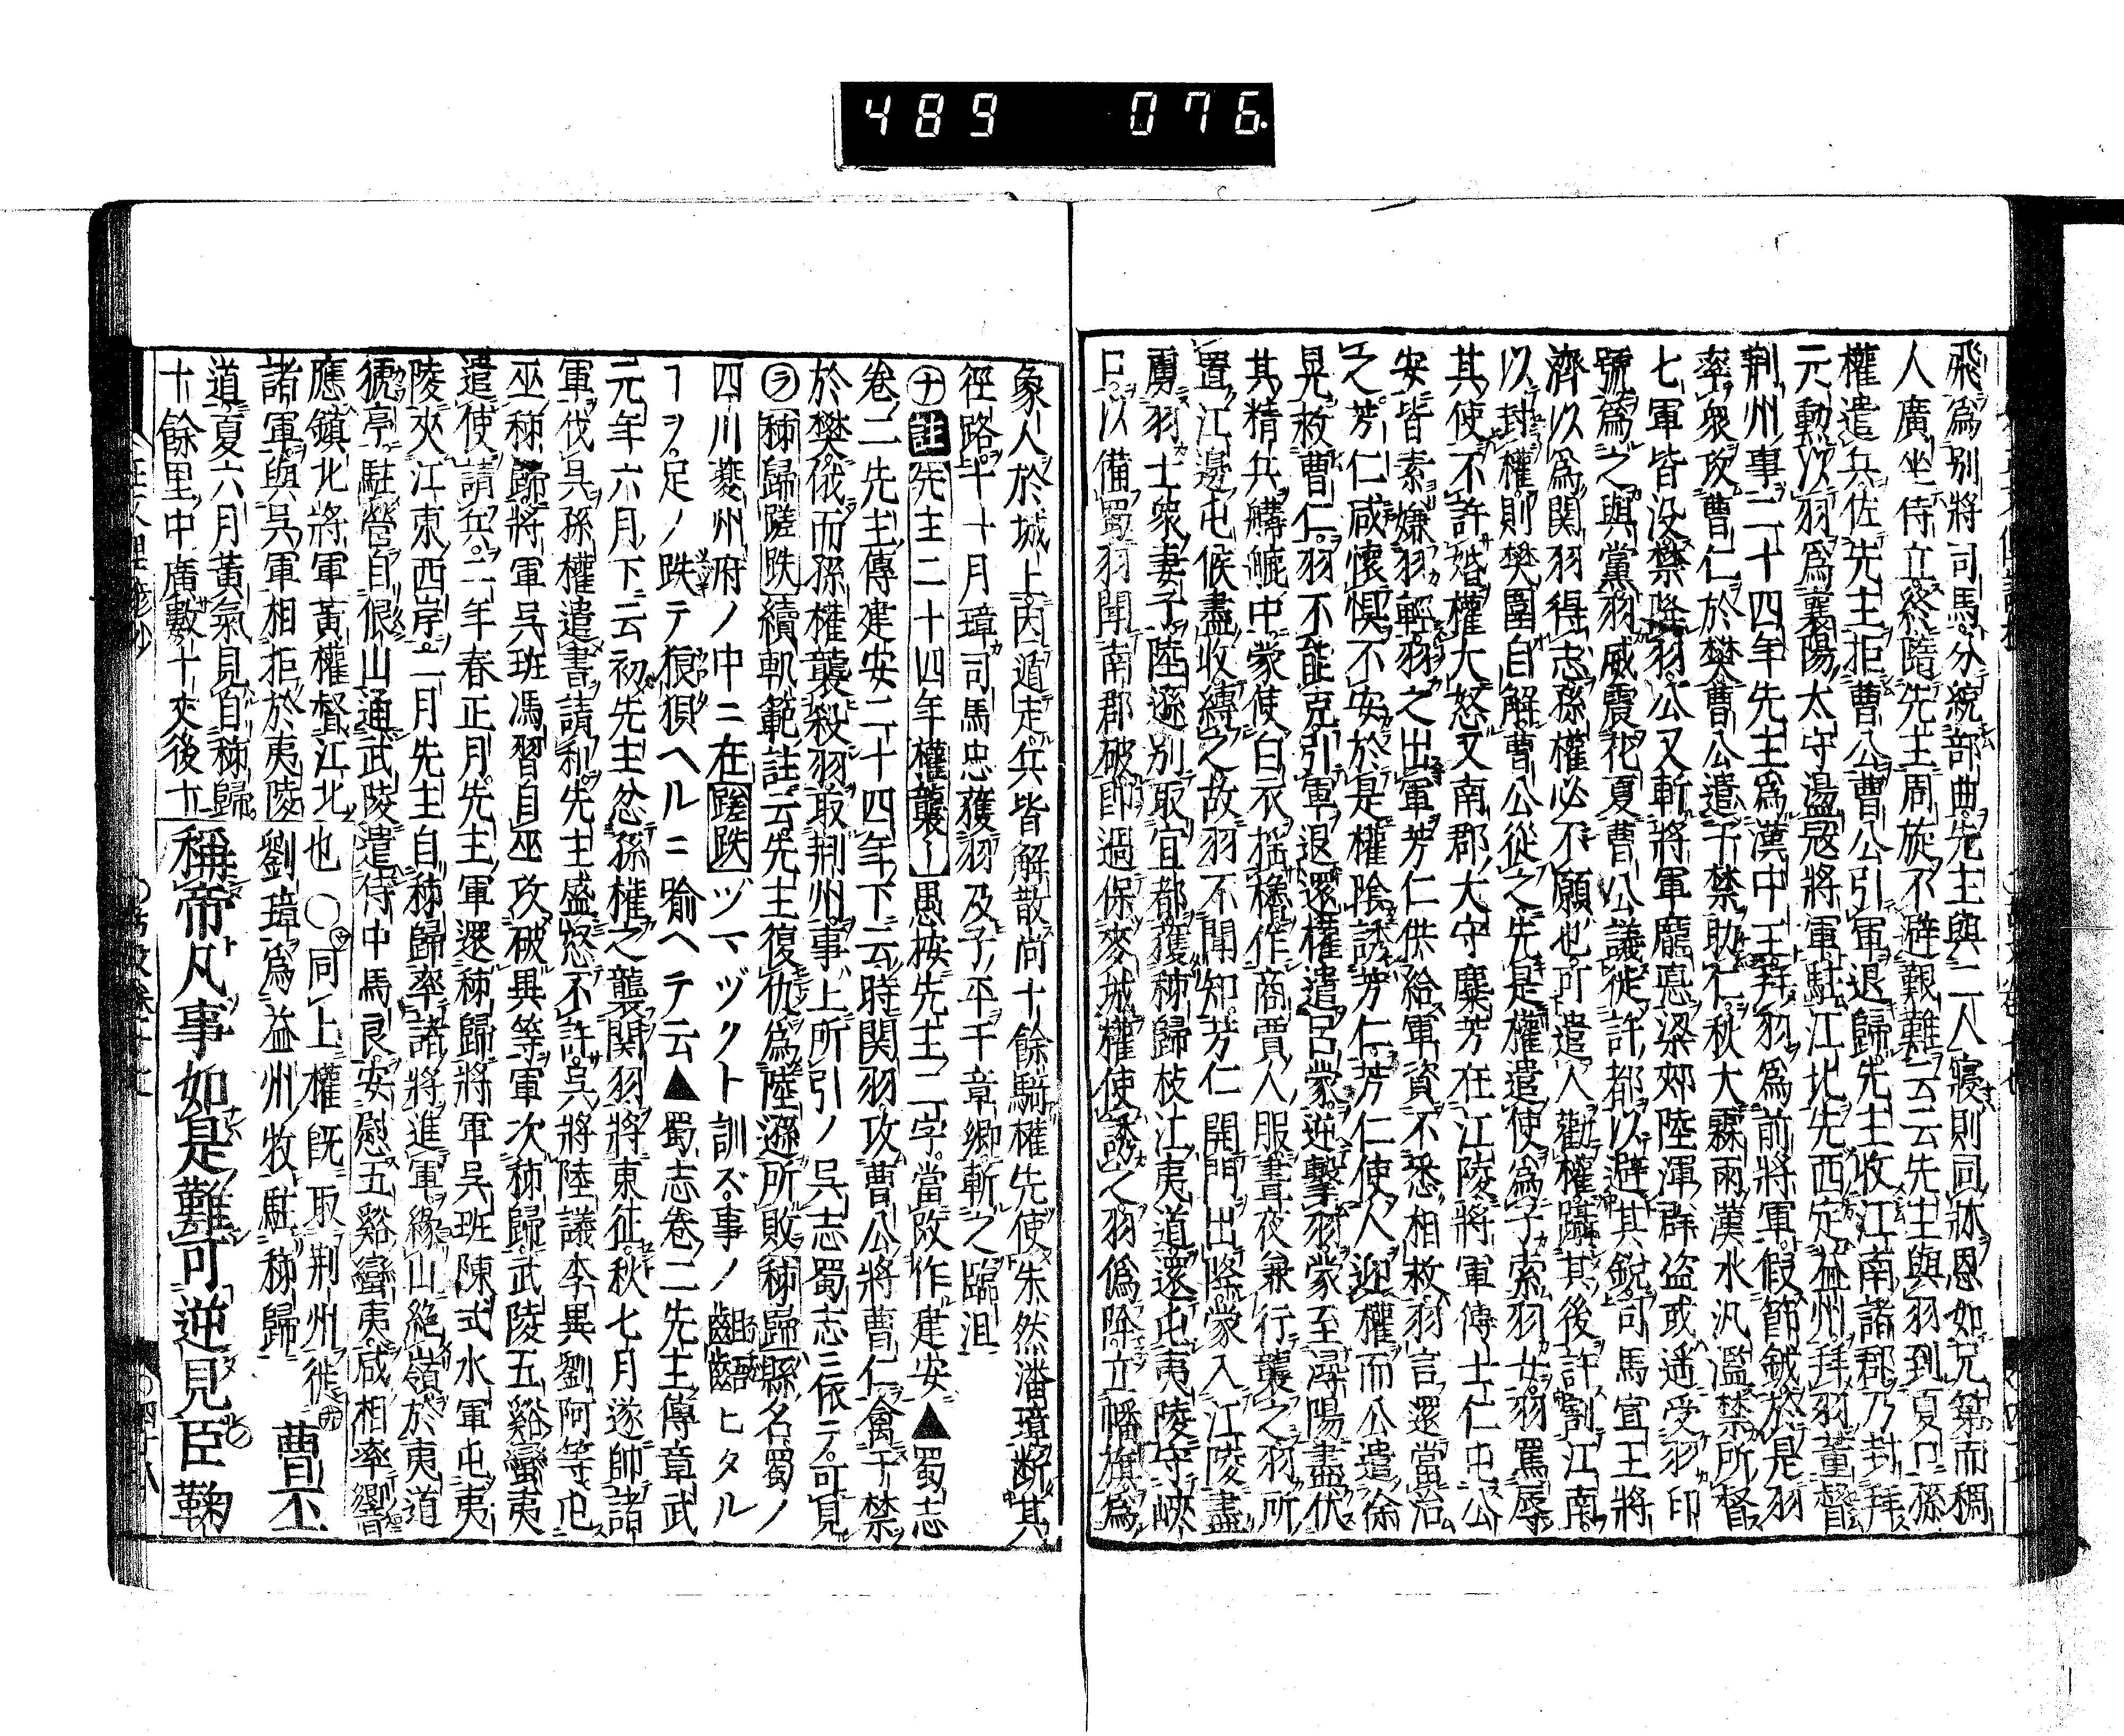 489 076.
飛為別將司馬分統部曲先主與二人寢則同牀恩如兄第而稠
人廣坐侍立終隨先主周旋不避艱難云云先主與羽到夏口孫
權遣兵佐先主拒曹公曹公引軍退歸先主收江南諸郡乃封拜
元勳以羽為襄陽太守盪冦將軍駐江北先西定益州拜羽董督
荆州事二十四年先主為漢中王拜羽為前將軍假節鉞於是羽
率衆攻曹仁於樊曹公遣于禁助仁秋大霖雨漢水汎濫禁所督
七軍皆没禁降羽公又斬將軍龐悳梁郟陸渾群盗或遥受羽印
號為之與黨羽威震花夏曹公議徙許都以避其鋭司馬宣王將
濟以為関羽得志孫權必不願也可遣人勸權躡其後許割江南
以封權則樊圍自解曹公從之先是權遣使為子索羽女羽罵辱
其使不許婚權大怒又南郡大守麋芳在江陵將軍傅士仁屯公
安皆素嫌羽輕羽之出軍芳仁供給軍資不悉相救羽言還當治
之芳仁咸懐惧不安於是權陰誘芳仁芳仁使人迎權而公遣徐
晃救曹仁羽不能克引軍退還權遣呂蒙逆擊羽蒙至潯陽盡伏
其精兵䑨䑦中蒙使白衣揺櫓作商賈人服晝夜兼行襲之羽所
置江邊屯候盡收縛之故羽不聞知芳仁開門出降蒙入江陵盡
虜羽士衆妻子陸遜別取宜都獲秭歸枝江夷道還屯夷陵守峽
口以備蜀羽聞南郡破即過保麥城權使誘之羽偽降立幡旗為
象人於城上因遁走兵皆解散尚十餘騎權先使朱然潘璋断其
徑路十十月璋司馬忠獲羽及子平千章郷斬之臨沮
ナ註先主二十四年權襲〡愚按先主二字當改作建安▲蜀志
卷二先主傳建安二十四年下云時関羽攻曹公將曹仁禽于禁
於樊俄而孫權襲殺羽取荆州事上所引ノ呉志蜀志三依テ可見
ラ秭歸蹉跌續軌範註云先主復仇為陸遜所敗秭歸縣名蜀ノ
四川䕫州府ノ中ニ在蹉跌ヅマヅクト訓ズ事ノ齟齬ヒタル
ヿヲ足ノ跌テ狼狽ヘルニ喩ヘテ云▲蜀志卷二先主傳章武
元年六月下云初先主忿孫權之襲関羽將東征秋七月遂帥諸
軍伐呉孫權遣書請利先主盛怒不許呉將陸議李異劉阿等屯
巫秭歸將軍呉班馮習自巫攻破異等軍次秭歸武陵五谿蠻夷
遣使請兵二年春正月先主軍還秭歸將軍呉班陳式水軍屯夷
陵夾江東西岸二月先主自秭歸率諸將進軍緣山絶嶺於夷道
猇亭駐營自佷山通武陵遣侍中馬良安慰五谿蠻夷咸相率響
應鎮北將軍黃權督江北
諸軍與呉軍相拒於夷陵
道夏六月黃氣見自秭歸
十餘里中廣數十丈後十
也〇ム同上權既取荆州徙
劉璋為益州牧駐秭歸
曹丕
稱帝凡事如是難可逆見臣鞠